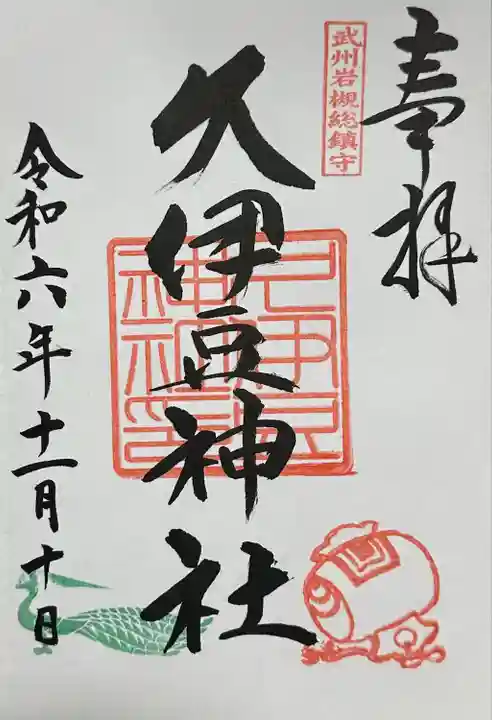 奉拝
武州岩槻総鎮守
久伊豆神社
令和六年十一月十日